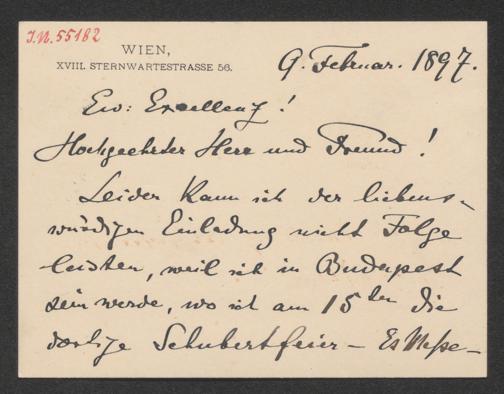 J.N. 55182
WIEN,
XVIII. STERNWARTESTRASSE 56.
9. Februar. 1897.
Ew: Excellenz!
Hochgeehrter Herr und Freund!
Leider kann ich der liebens-
würdigen Einladung nicht Folge
leisten, weil ich in Budapest
sein werde, wo ich am 15ten die
dortige Schubertfeier – Es Messe –